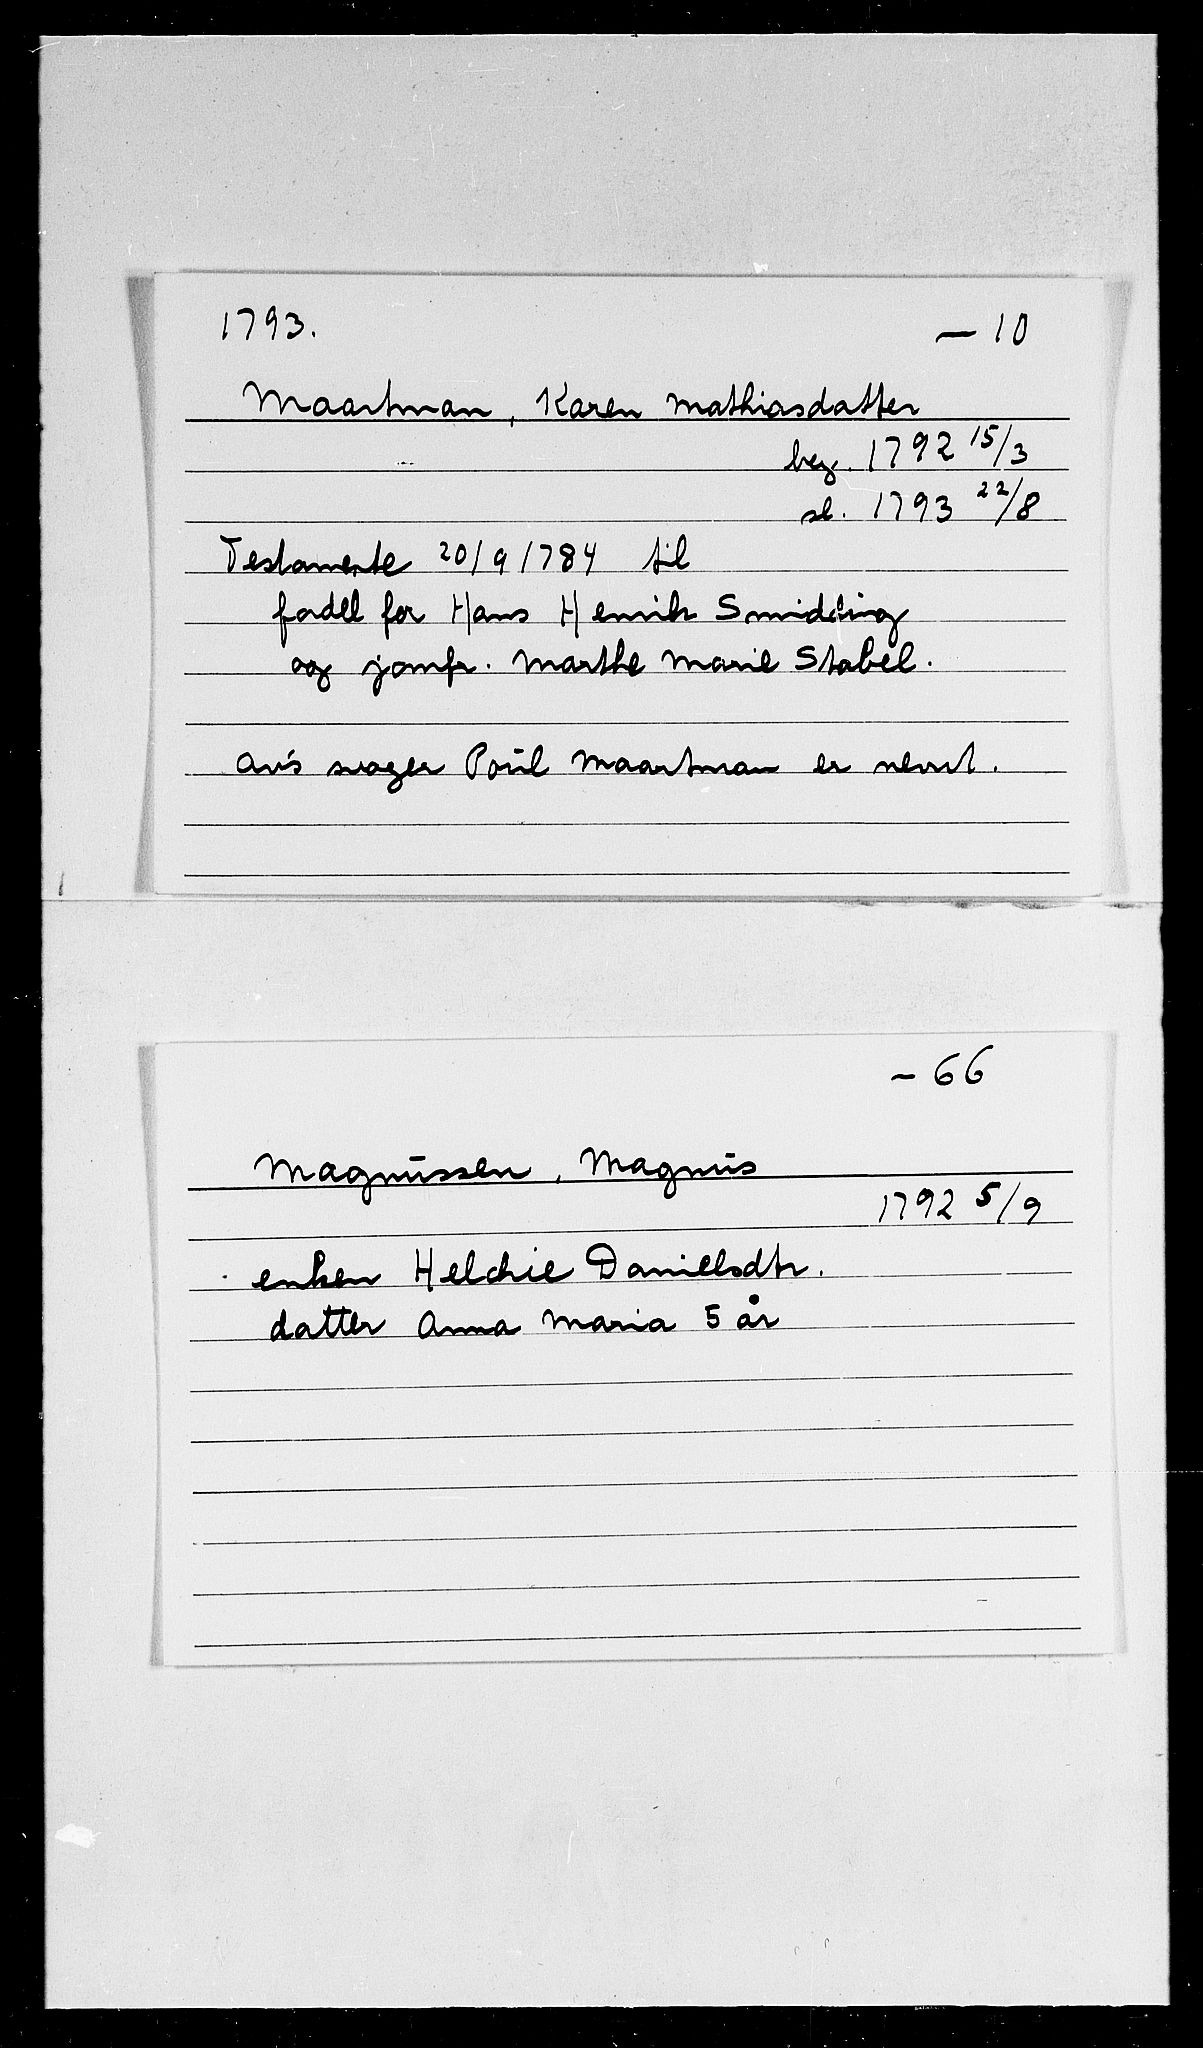 1793. — 10
Maartman, Karen Mathiasdatter
beg. 1792 15/3
sl. 1793 22/8
Testamente 20/9 1784 til
fordel for Hans Henrik Smidding
og jomfr. Marthe Marie Stabel.
Avs svoger Poül Maartman er nevnt.
– 66
Magnüssen, Magnüs
1792 5/9
enken Helchie Danielsdtr.
datter Anna Maria 5 år